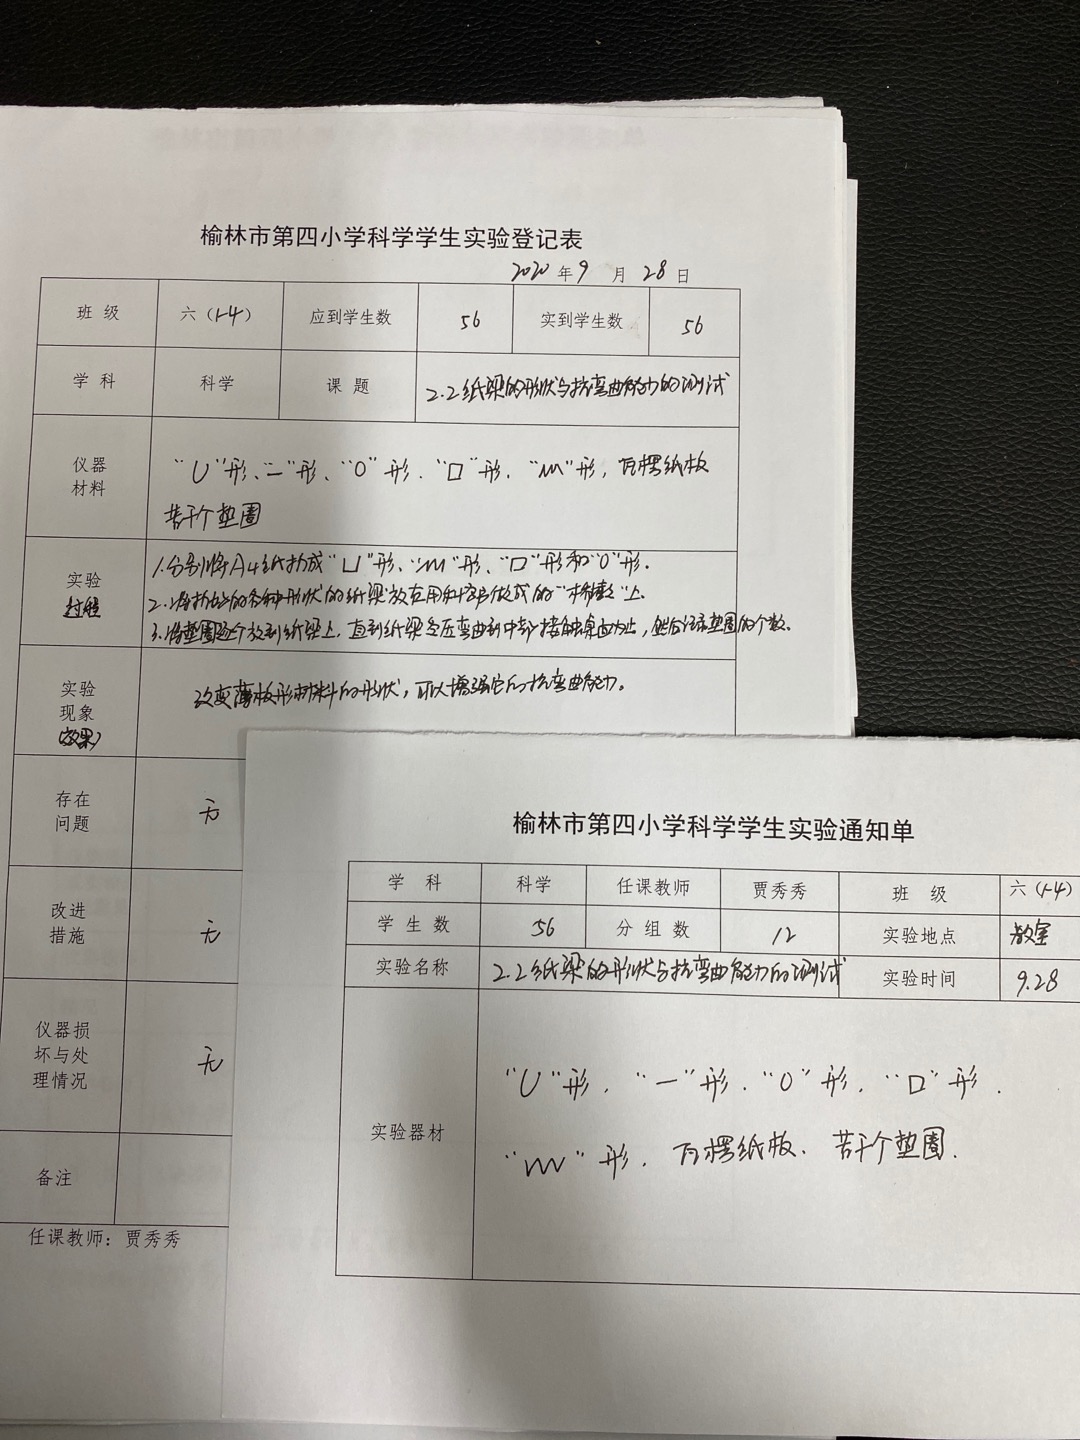 榆林市第四小学科学学生实验登记表
2020 年 9 月 28 日
班 级 六（1-4） 应到学生数 56 实到学生数 56
学 科 科学 课 题 2.2纸梁的形状与抗弯曲能力的测试
仪器
材料
“U”形、“一”形、“O”形、“口”形、“M”形，瓦楞纸板
若干个垫圈
实验
过程
1.分别将A4纸折成“凵”形、“M”形、“口”形和“O”形.
2.将折好的各种形状的纸梁放在用和书做成的“桥墩”上.
3.将垫圈逐个放到纸梁上，直到纸梁受压弯曲到中部接触桌面为止，然后记录垫圈的个数.
实验
现象
（效果）
改变薄板形材料的形状，可以增强它的抗弯曲能力。
存在
问题
无
改进
措施
无
仪器损
坏与处
理情况
无
备注
任课教师：贾秀秀
榆林市第四小学科学学生实验通知单
学 科 科学 任课教师 贾秀秀 班 级 六（1-4）
学 生 数 56 分 组 数 12 实验地点 教室
实验名称 2.2纸梁的形状与抗弯曲能力的测试 实验时间 9.28
实验器材
“U”形、“一”形、“O”形、“口”形、
“M”形、瓦楞纸板、若干个垫圈.